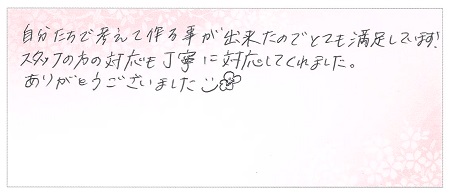 自分たちで考えて作る事が出来たのでとても満足しています!
スタッフの方の対応も丁寧に対応してくれました。
ありがとうございました